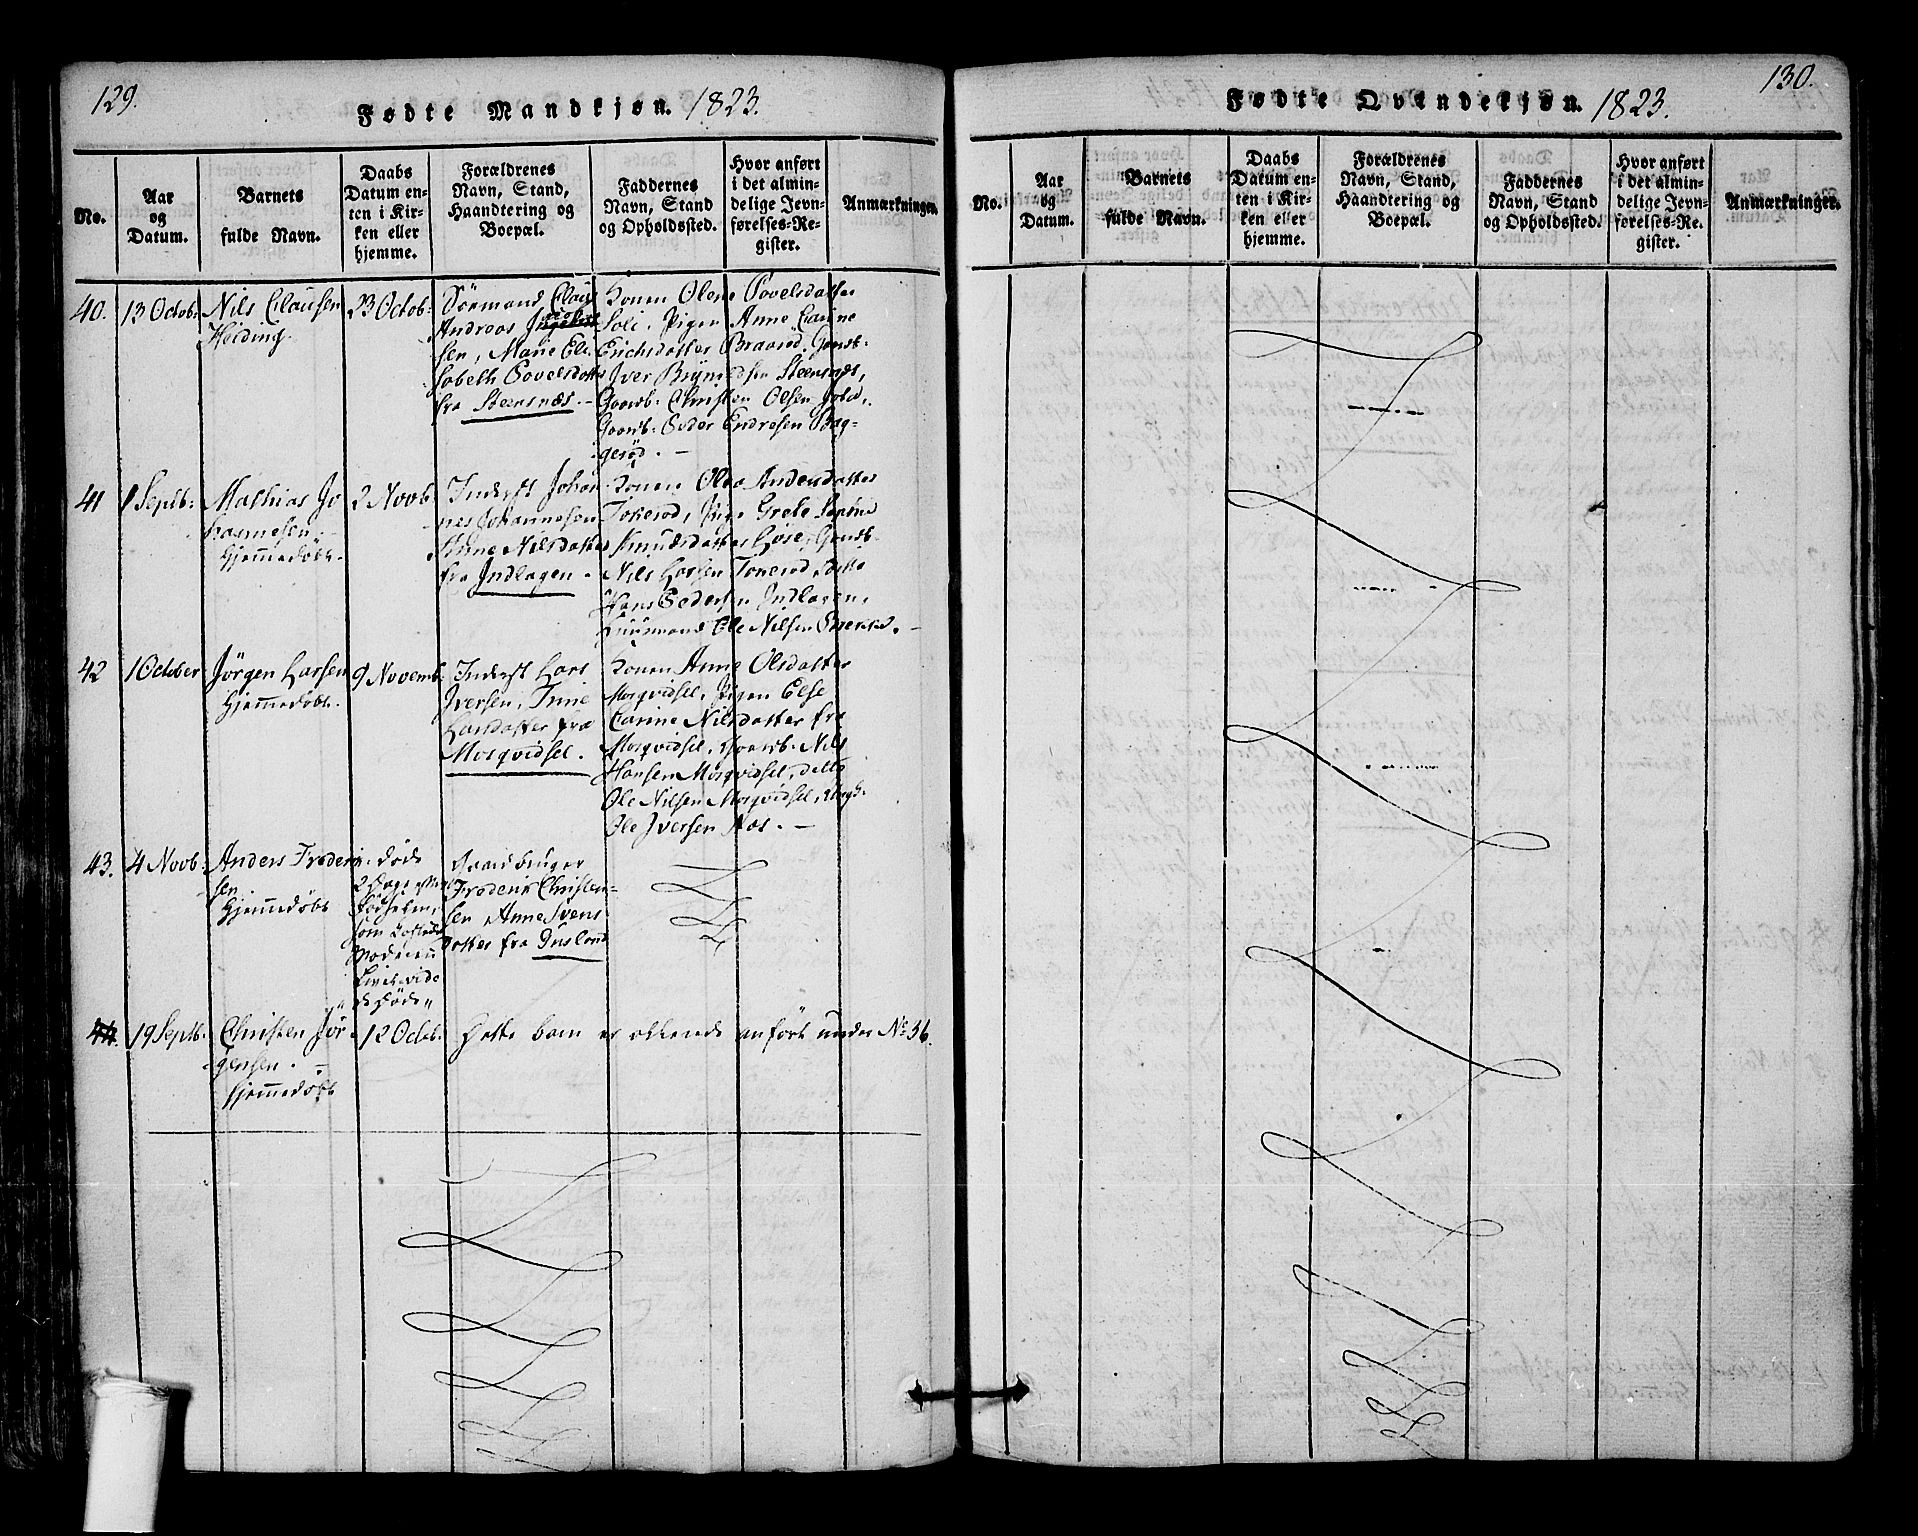 129.
Fødte Mandkjøn. 1823.
No.
Aar
og
Datum.
Barnets
fulde Navn.
Daabs
Datum en-
ten i Kir-
ken eller
hjemme.
Forældrenes
Navn, Stand,
Haandtering og
Boepæl.
Faddernes
Navn, Stand
og Opholdssted.
Hvor anført
i det almin-
delige Jevn-
førelses-Re-
gister.
Anmærkninger.
40.
13 Octob:
Nils Clausen
Heiding.
23 Octob:
Sörmand Claus
Andreas
sen, Marie Eli-
sabeth Povelsdatter
fra Steensnæs. –
Konen Olene Povelsdatter
Soli, Pigen Anne Carine
Erichsdatter Braarød, Gaardb:
Iver Brynildsen Steensnæs,
Gaardb: Christen Olsen
Gaardb: Peder Endresen Bag-
gerød. –
41
1 Septb:
Mathias Jo
hannesen. –
Hjemmedøbt.
2 Novb:
Inderst Johan
nes Johannesen
Anne Nilsdatter
fra Indlagen.
Konen Olea Andersdatter
Tonerød, Pige Grete
Knudsdatter Gaardb:
Nils Larsen Tonerød, ditto
Hans Pedersen Indlagen,
Huusmand Ole Nilsen –
42
1 October
Jørgen Larsen
Hjemmedøbt.
9 Novemb:
Inderst Lars
Iversen, Inne
Larsdatter fra
Morqvidsel.
Konen Anne Olsdatter
Morqvidsel, Pigen Else
Carine Nilsdatter fra
Morqvidsel, Gaardb: Nils
Hansen Morqvidsel, ditto
Ole Nilsen Morqvidsel, Ungk:
Ole Iversen Næs. –
43.
4 Novb:
Anders Frederik
sen
Hjemmedøbt
døde
2 Dage efter
Fødselen,
som
Moderen
Livet ved
døde"
Gaardbruger
Frederik Christen-
sen Anne Svens
datter fra Huslund
44.
19 Septb:
Christen Jør
gensen. –
Hjemmedøbt
12 Octob:
Dette barn er allerede anført under No 36.
130.
Fødte Qvindekjøn. 1823.
No.
Aar
og
Datum.
Barnets
fulde Navn.
Daabs
Datum en-
ten i Kir-
ken eller
hjemme.
Forældrenes
Navn, Stand,
Haandtering og
Boepæl.
Faddernes
Navn, Stand
og Opholdssted.
Hvor anført
i det almin-
delige Jevn-
førelses-Re-
gister.
Anmærkninger.